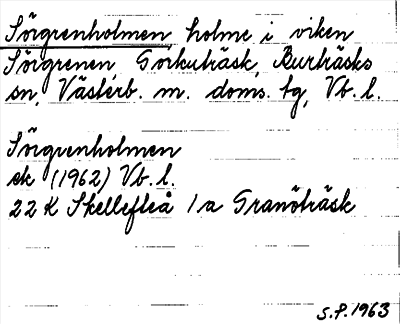 Sörgrenholmen, holme i viken
Sörgrenen, Gorkuträsk, Burträsks
sn, Västerb. m. doms. tg, Vb. l.
Sörgrenholmen
ek (1962) Vb. l.
22 K Skellefteå 1a Granöträsk
S.P. 1963